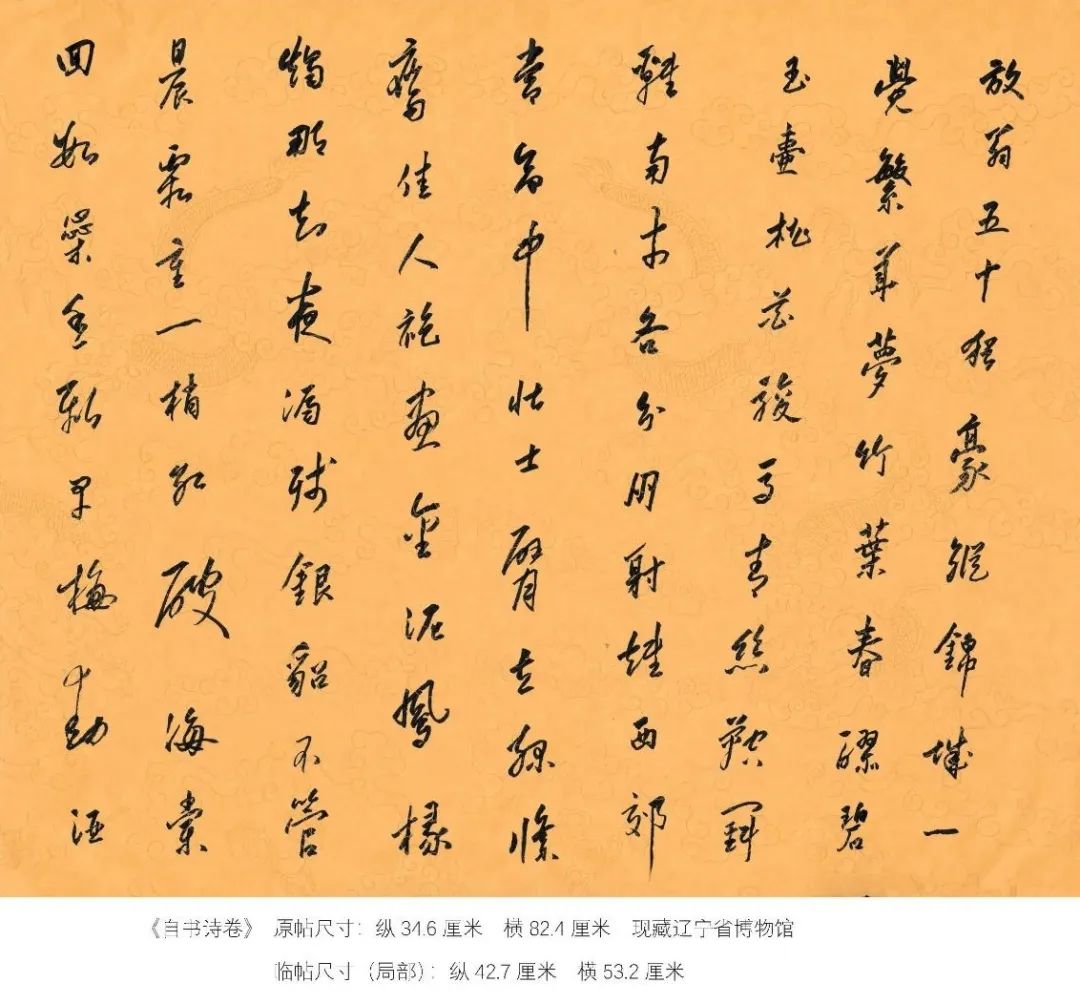 放翁五十猶豪縱錦城一
覺繁華夢竹葉春醪碧
玉壺桃花駿馬青絲鞚鬭
雞南市各分朋射雉西郊
常命中壯士臂立綠絛
鷹佳人袍畫金泥鳳椽
燭那知夜漏殘銀貂不管
晨霜重一梢紅破海棠
回數蘂香新早梅動酒
《自书诗卷》 原帖尺寸：纵 34.6 厘米 横 82.4 厘米 现藏辽宁省博物馆
临帖尺寸（局部）：纵 42.7 厘米 横 53.2 厘米